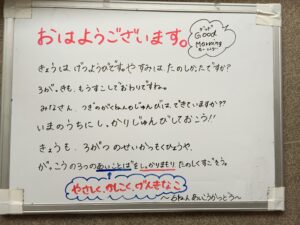 おはようございます。
グッド
Good
Morning
モーニング
きょうは、げつようびです。やすみは、たのしかったですか?
3がつも、もうすこしでおわりですね。
みなさん、つぎのがくねんのじゅんびは、できていますか??
いまのうちに しっかりじゅんびしておこう!!
きょうも、3がつのせいかつもくひょうや、
がっこうの3つのあいことばをしっかりまもり たのしくすごそう。
やさしく、かしこく、げんきなこ